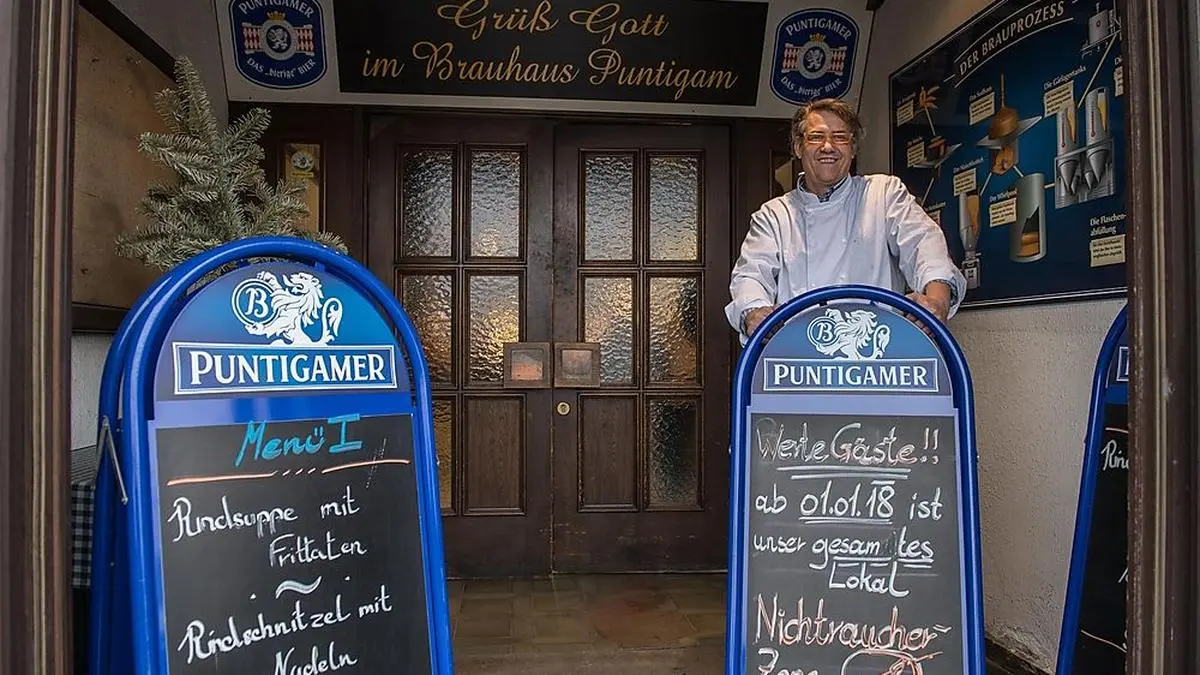 PUNTIGAMER
DAS „bierige" BIER
Grüß Gott
im Brauhaus Puntigam
PUNTIGAMER
DAS „bierige" BIER
DER BRAUPROZESS
Die Gärlagertanks
Die Flaschen-
abfüllung
B
PUNTIGAMER
Menü I
Rindsuppe mit
Frittaten
~
Rindschnitzel mit
Nudeln
B
PUNTIGAMER
Werte Gäste!!
ab 01.01.18 ist
unser gesamtes
Lokal
Nichtraucher-
Zone